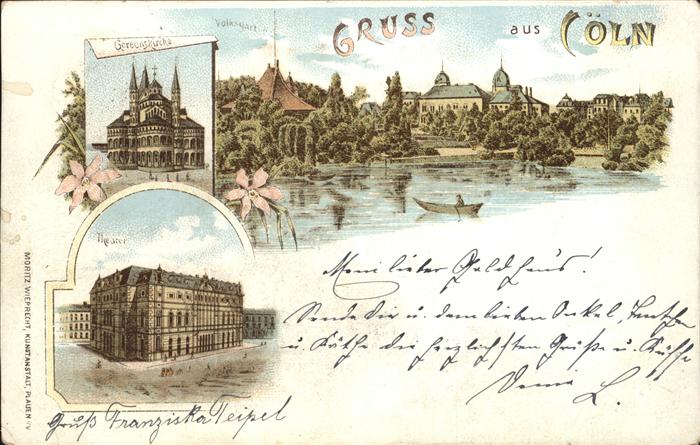 Gereonskirche
Volksgarten
GRUSS aus CÖLN
Theater
Mein lieber Goldhans!
Sende Dir u. dem lieben Onkel,
u. Käthe die herzlichsten Grüße u. Küsse
Deine L.
Gruß Franziska Teipel
MORITZ WIEPRECHT, KUNSTANSTALT, PLAUEN i/V